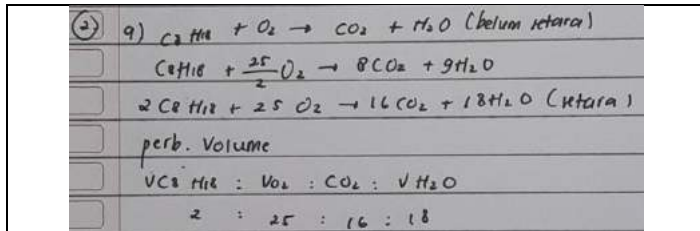 2) a) C8H18 + O2 → CO2 + H2O (belum setara)
C8H18 + 25/2 O2 → 8CO2 + 9H2O
2 C8H18 + 25 O2 → 16 CO2 + 18H2O (setara)
perb. Volume
VC8H18 : VO2 : CO2 : V H2O
2 : 25 : 16 : 18